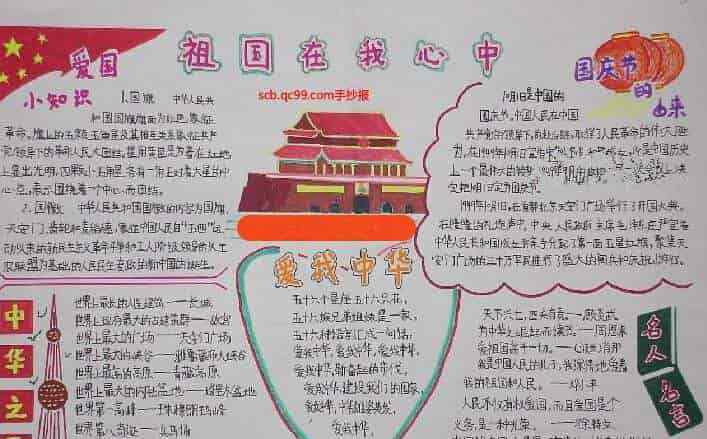 祖国在我心中
scb.qc99.com手抄报
爱国
小知识
1.国旗 中华人民共
和国国旗旗面为红色,象征
革命。旗上的五颗五角星及其相互关系象征共产
党领导下的革命人民大团结。星用黄色是为着在红地
上显出光明,四颗小五角星各有一角正对着大星的中
心点,表示围绕着一个中心而团结。
2.国徽 中华人民共和国国徽的内容为国旗、
天安门、齿轮和麦稻穗,象征中国人民自“五四”运
动以来的新民主主义革命斗争和工人阶级领导的以工
农联盟为基础的人民民主专政的新中国的诞生。
国庆节
的
由来
10月1日是中国的
国庆节。中国人民在中国
共产党的领导下,
上一个最伟大的转变
1949年10月1日,在首都北京天安门广场举行了开国大典,
在隆隆的礼炮声中,中央人民政府主席毛泽东庄严宣告
中华人民共和国成立并亲手升起了第一面五星红旗。聚集天
安门广场的三十万军民进行了盛大的阅兵和庆祝游行。
爱我中华
五十六个星座五十六只花,
五十六族兄弟姐妹是一家,
五十六种语言汇成一句话:
爱我中华,爱我中华,爱我中华,
爱我中华,
爱我中华,建设我们的国家,
爱我中华,
爱我中华
中华之
世界上最长的人造建筑——长城
世界上现存最大的古建筑群——故宫
世界上最大的广场——天安门广场
世界上最大的峡谷——雅鲁藏布大峡谷
世界上最高的高原——青藏高原
世界上最大的内陆盆地——塔里木盆地
世界第一高峰——珠穆朗玛峰
世界第八奇迹——兵马俑
名人
名言
天下兴亡,匹夫有责。——顾炎武
为中华之崛起而读书。——周恩来
爱祖国高于一切。——肖邦
我是中国人民的儿子,我深情地爱着
我的祖国和人民。——邓小平
人民不仅有权爱国,而且爱国是个义
务,是一种光荣。——徐特立